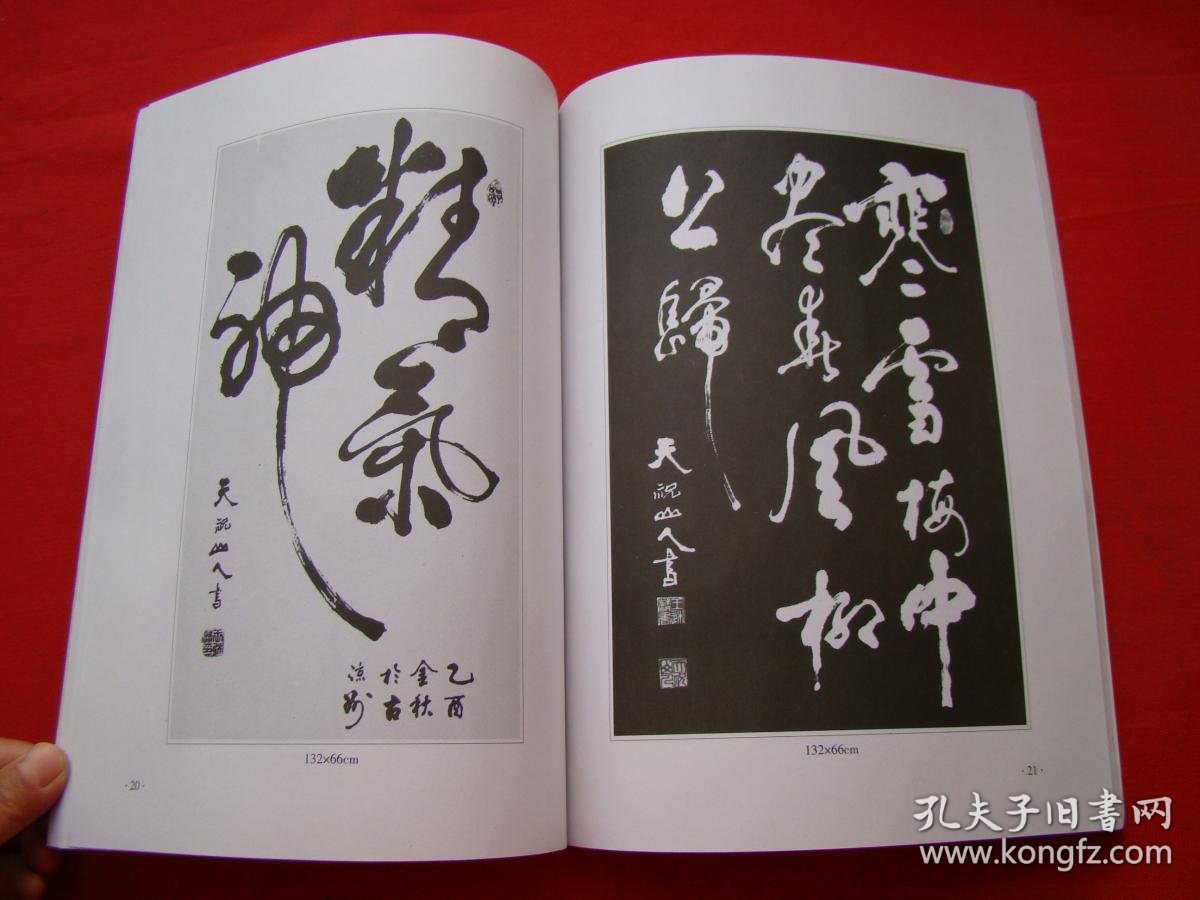 精氣
神
天祝山人書
乙酉
金秋
於古
涼州
132×66cm
·20·
寒雪梅中
盡春風柳
上歸
天祝山人書
132×66cm
·21·
孔夫子旧書网
www.kongfz.com